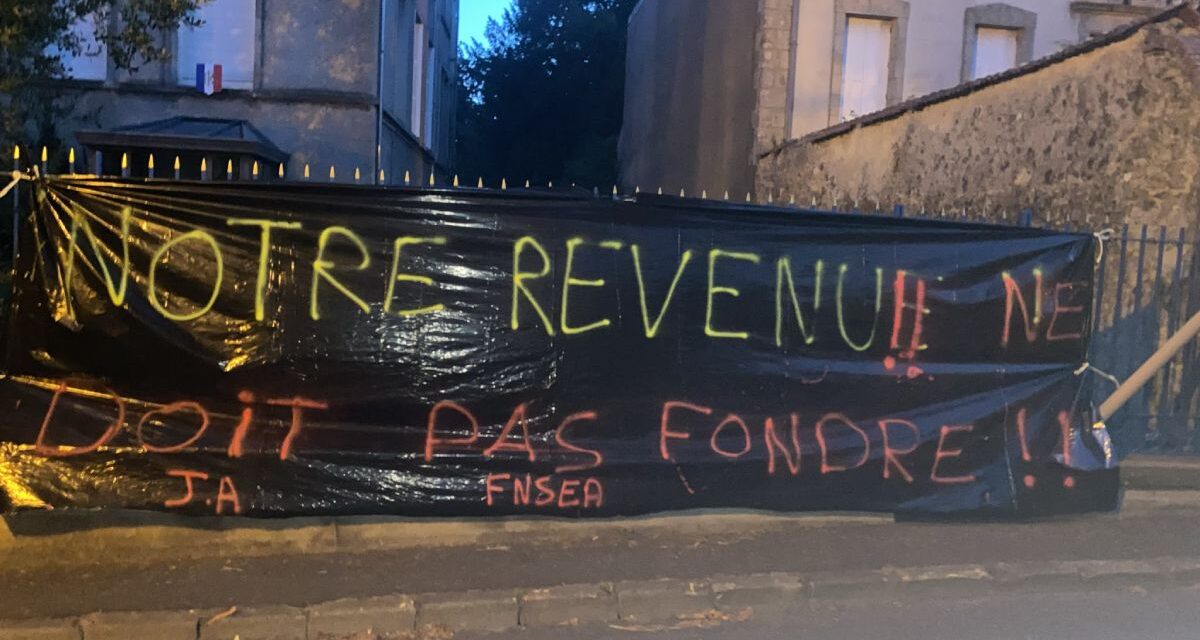 NOTRE REVENU!! NE
DOIT PAS FONDRE !!
J.A FNSEA